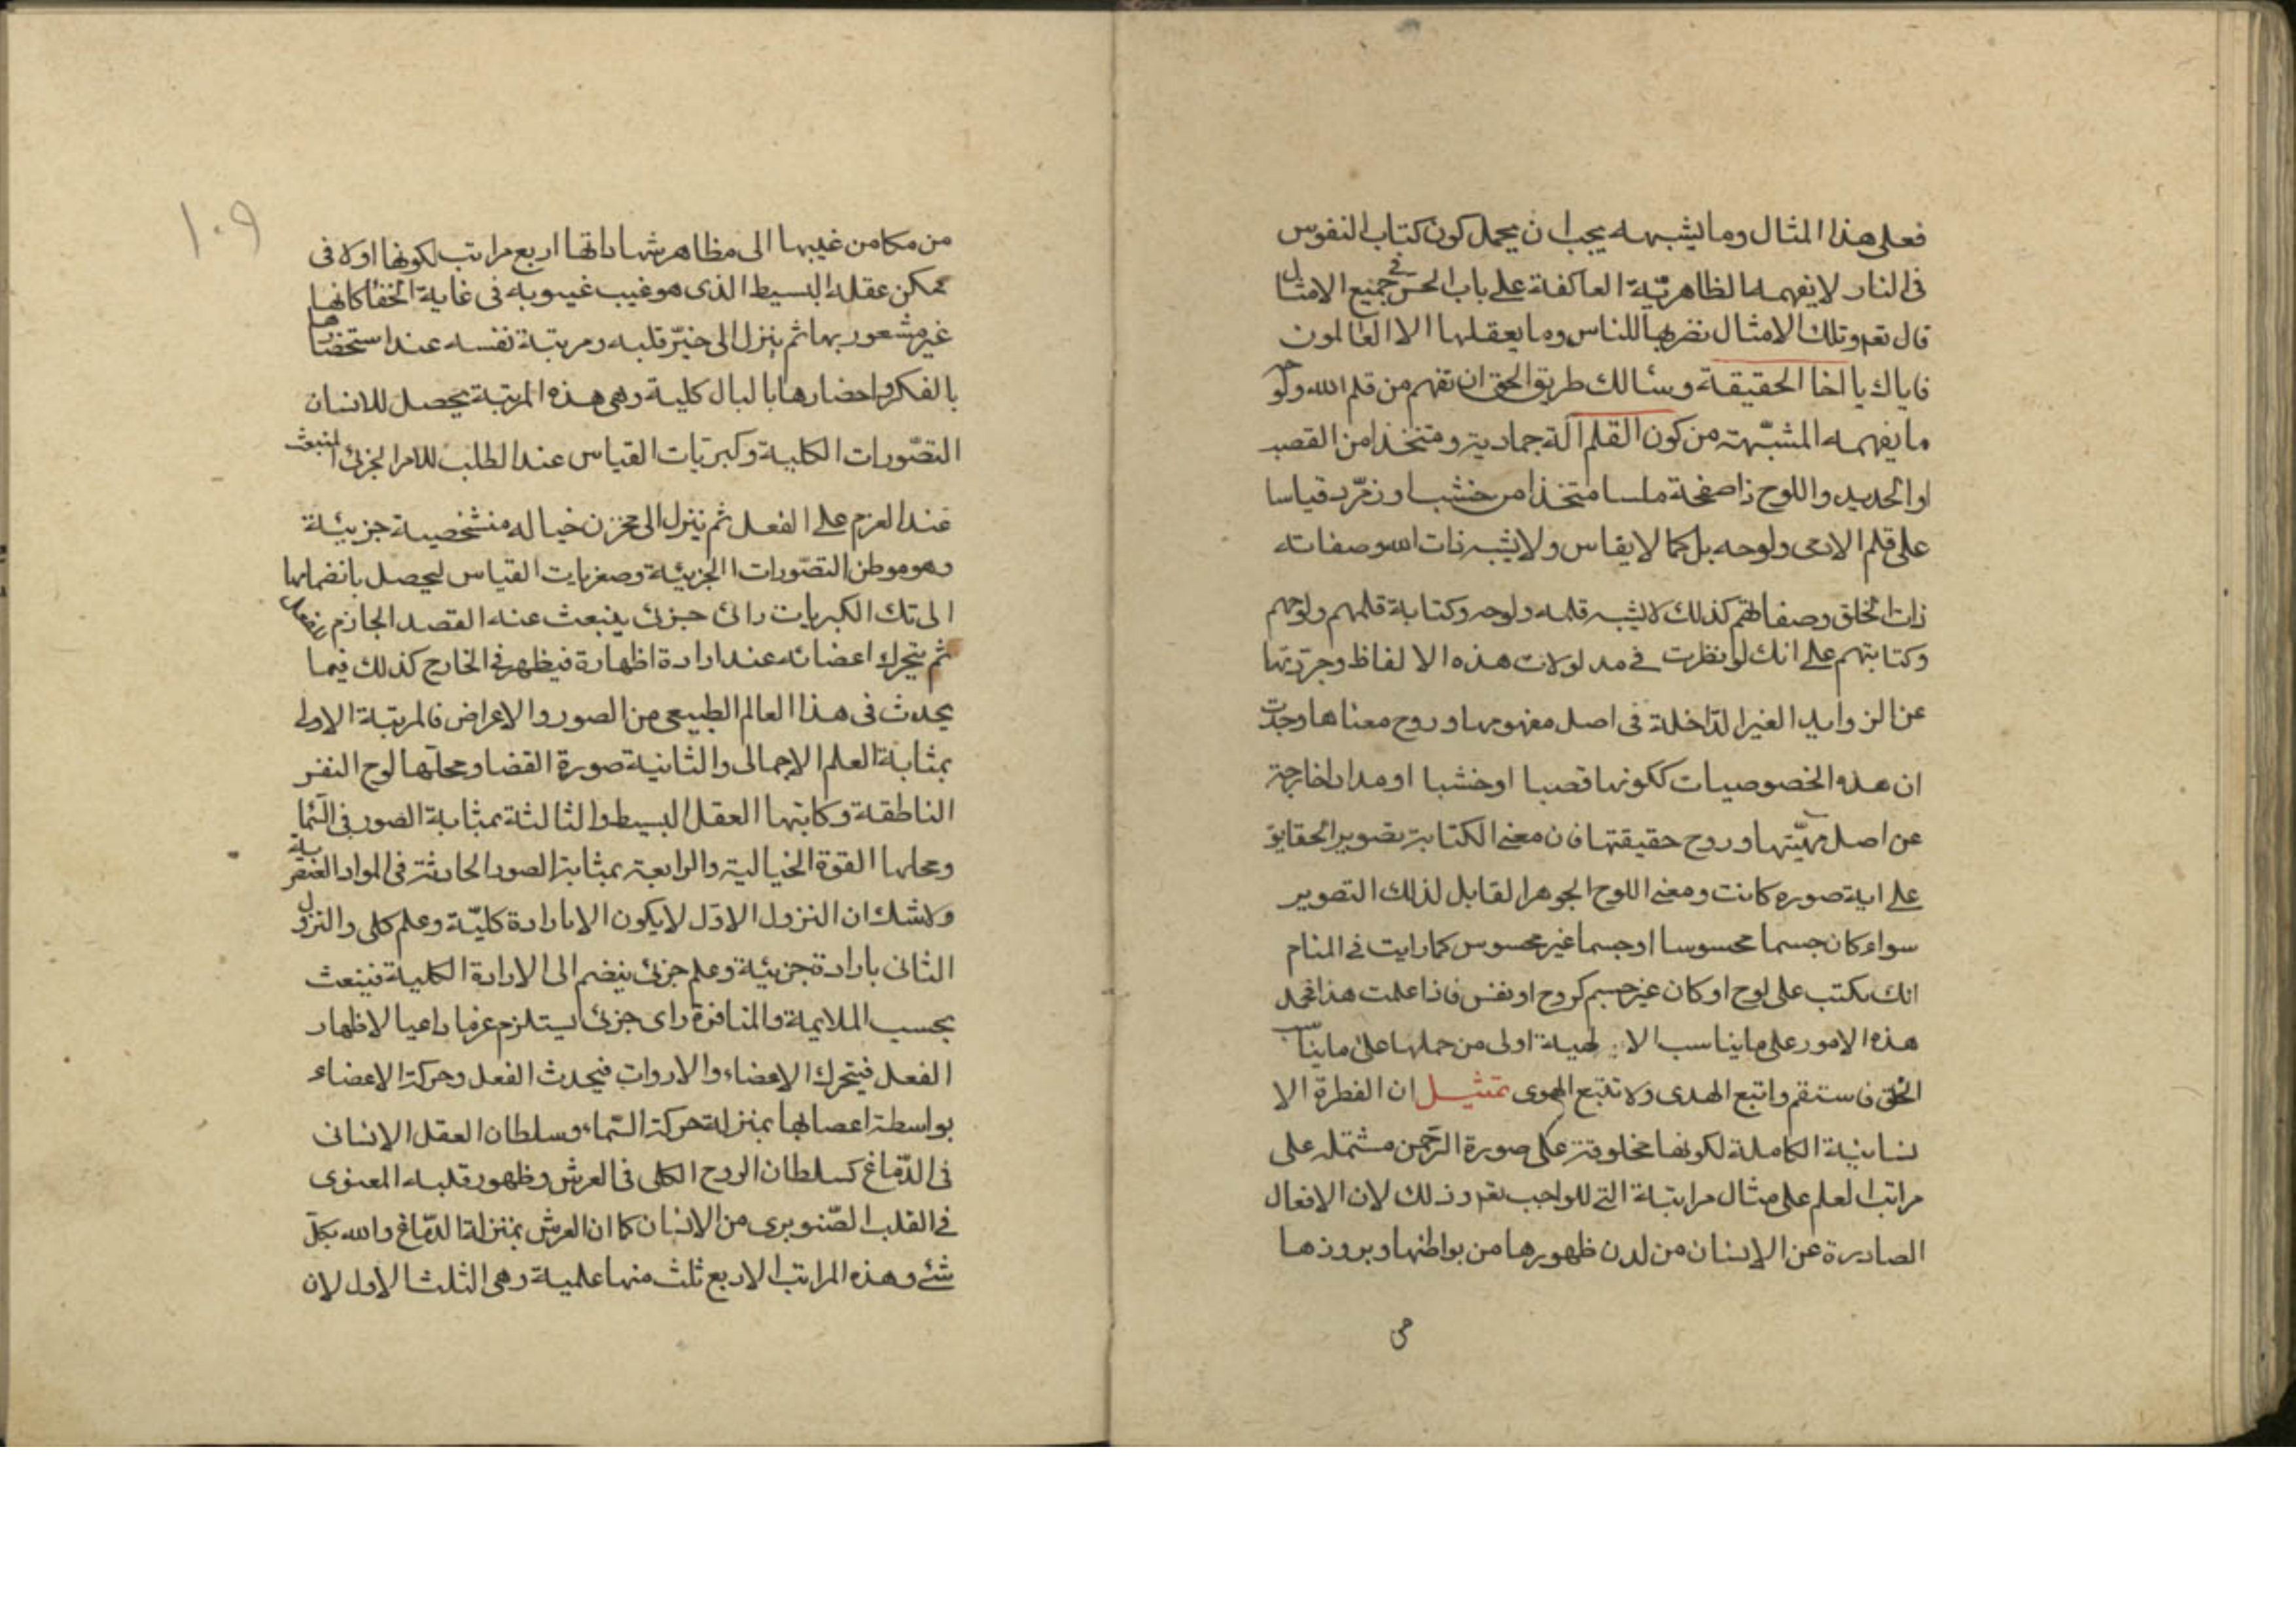 فعلى هذا المثال وما يشبهه يجب ان يحمل كون كتاب النفوس
فى النار لا يفهمه الظاهريّة العاكفة على باب الحس فى جميع الامثال
قال تعم وتلك الامثال نضربها للناس وما يعقلها الا العالمون
فاياك يا اخا الحقيقة وسالك طريق الحق ان تفهم من قلم الله ولوحه
ما يفهمه المشبّهته من كون القلم آلة جمادية ومتخذا من القصب
او الحديد واللوح ذا صفحة ملسا متخذا من خشب او زمرّد قياسا
على قلم الادمى ولوحه بل كما لا يقاس ولا يشبه ذات الله وصفاته
ذات الخلق وصفاتهم كذلك لا يشبه قلمه ولوحه وكتابة قلمهم ولوحهم
وكتابتهم على انك لو نظرت فى مدلولات هذه الالفاظ وجردتها
عن الزوايد الغير الداخلة فى اصل مفهومها وروح معناها وجدت
ان هذه الخصوصيات ككونها قصبا او خشبا او مدادا خارجة
عن اصل مهيّتها وروح حقيقتها فان معنى الكتابة تصوير الحقايق
على اية صوره كانت ومعنى اللوح الجوهر القابل لذلك التصوير
سواء كان جسما محسوسا او جسما غير محسوس كما رايت فى المنام
انك تكتب على لوح او كان غير جسم كروح او نفس فاذا علمت هذا فحمل
هذه الامور على ما يناسب الالهية اولى من حملها على ما يناسب
الخلق فاستقم واتبع الهدى ولا تتبع الهوى تمثيل ان الفطرة الا
نسانية الكاملة لكونها مخلوقة على صورة الرّحمن مشتملة على
مراتب العلم على مثال مراتبة التى للواجب تعم وذلك لان الافعال
الصادرة عن الانسان من لدن ظهورها من بواطنها وبروزها
من
١٠٩
من مكامن غيبها الى مظاهر شهاداتها اربع مراتب لكونها اولا فى
ممكن عقله البسيط الذى هو غيب غيوبه فى غاية الخفا كانها
غير مشعور بها ثم ينزل الى حيّز قلبه ومرتبة نفسه عند استحضارها
بالفكر واحضارها بالبال كلية وهى هذه المرتبة يحصل للانسان
التصّورات الكلية وكبريات القياس عند الطلب للامر الجزئ المنبعث
عند العزم على الفعل ثم ينزل الى مخزن خياله متشخصية جزيئة
وهو موطن التصّورات الجزيئة وصغريات القياس ليحصل بانضمامها
الى تك الكبريات رائ جزئ ينبعث عنه القصد الجازم للفعل
ثم يتحرك اعضائه عند ارادة اظهارة فيظهر فى الخارج كذلك فيما
يحدث فى هذا العالم الطبيعى من الصور والاعراض فالمرتبة الاولى
بمثابة العلم الاجمالى والثانية صورة القضا ومحلها لوح النفس
الناطقة وكاتبها العقل البسيط والثالثة بمثابة الصور فى السّما
ومحلها القوة الخيالية والرابعة بمثابة الصور الحادثة فى المواد العنصرية
ولا شك ان النزول الاوّل لا يكون الا بارادة كليّة وعلم كلى والنزول
الثانى بارادة جزيئية وعلم جزئ ينضم الى الارادة الكلية فينبعث
بحسب الملايمة والمنافرة راى جزئ يستلزم عزما داعيا لاظهار
الفعل فيتحرك الاعضاء والادوات فيحدث الفعل وحركة الاعضاء
بواسطة اعصابها بمنزلة حركة السّماء وسلطان العقل الانسانى
فى الدّماغ كسلطان الروح الكلى فى العرش وظهور قلبه المعنوى
فى القلب الصّنوبرى من الانسان كما ان العرش بمنزلة الدّماغ والله بكلّ
شئ وهذه المراتب الاربع ثلث منها علمية وهى الثلث الاول لان